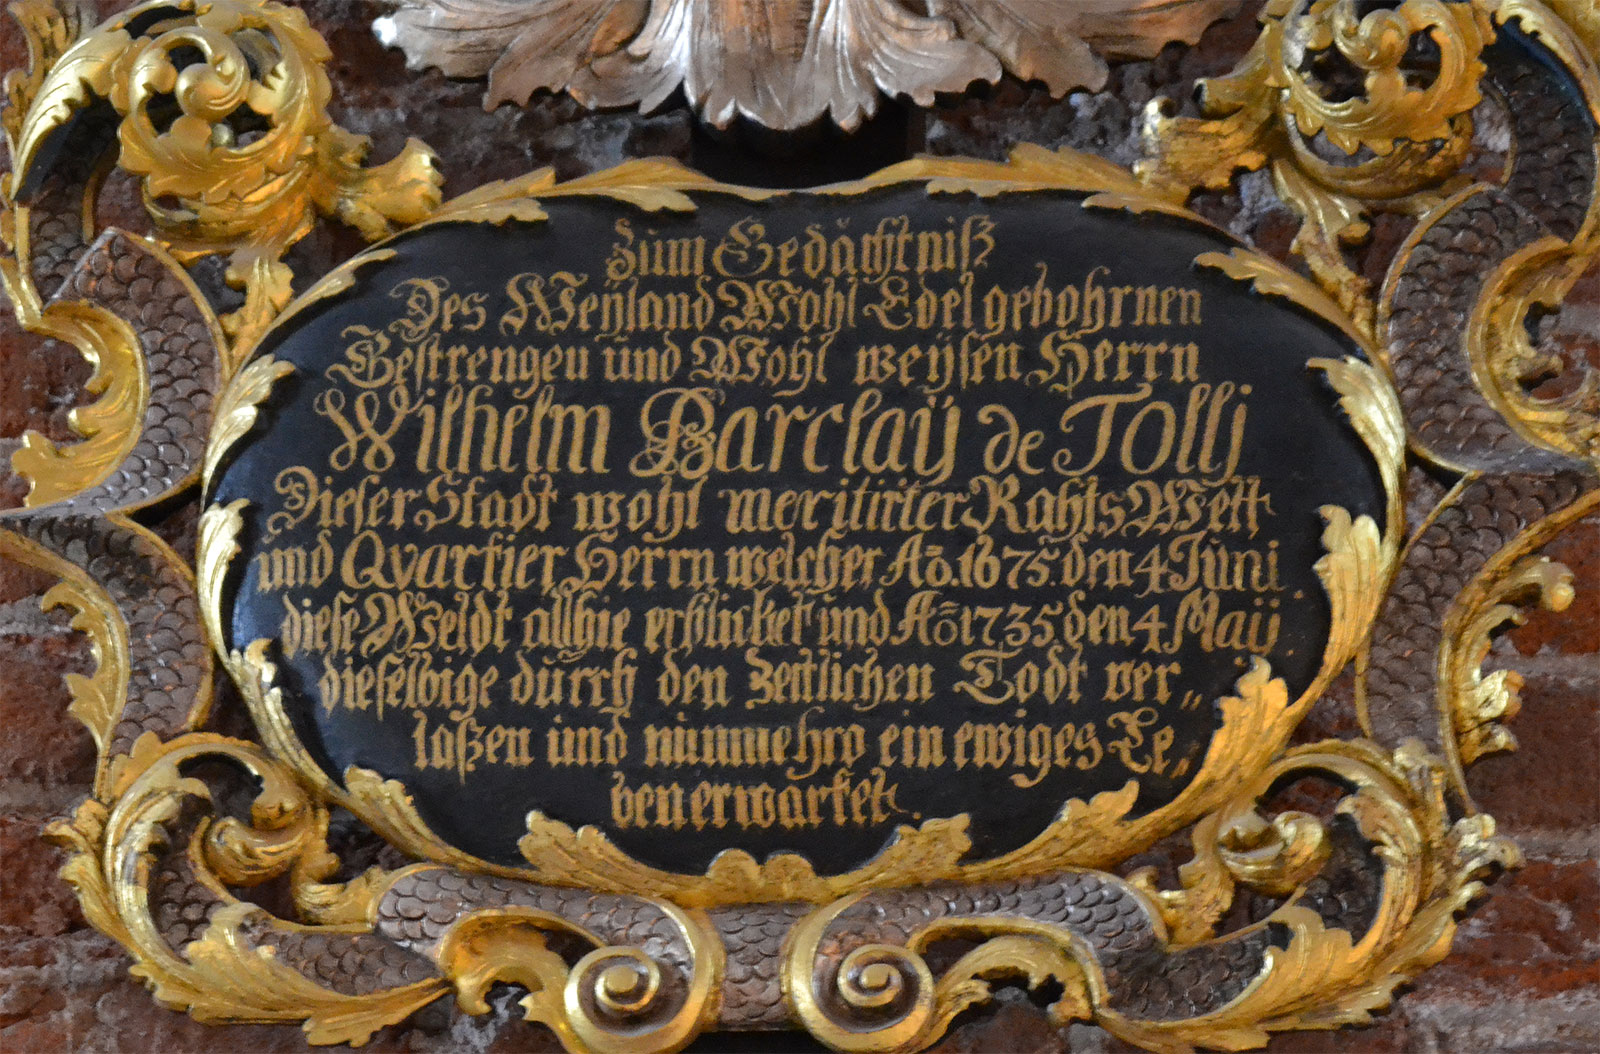 Züm Gedächtniß
Des Weÿland Wohl Edel gebohrnen
Gestrengen ünd Wohl weÿsen Herrn
Wilhelm Barclaÿ de Tollj
Dieser Stadt wohl meritirter Rahts Wett
und Qvartier Herrn welcher Aō. 1675. den 4 Jüni.
diese Weldt allhie erblicket ünd Aō 1735 den 4 Maÿ.
dieselbige dürch den Zeitlichen Todt ver„
laßen ünd nünmehro ein ewiges Le„
ben erwartet.